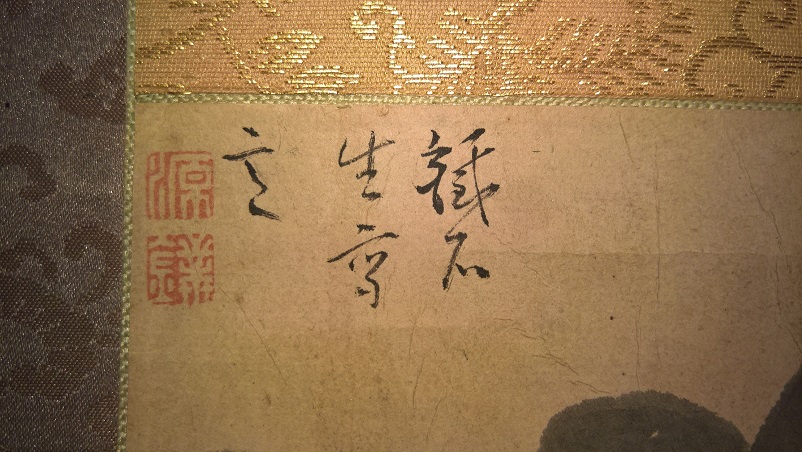 鐵石
生寫
意